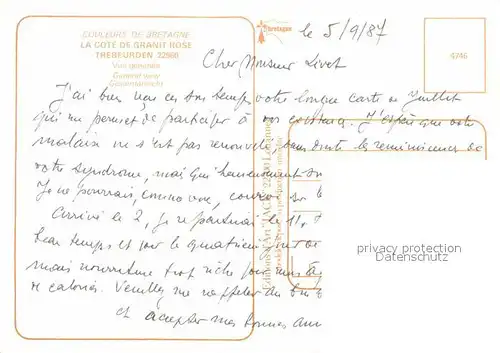 COULEURS DE BRETAGNE
LA COTE DE GRANIT ROSE
TREBEURDEN 22560
Vue générale
General view
Gesamtansicht
Bretagne
4746
le 5/9/87
Cher Monsieur Livet
J'ai bien reçu en son temps votre longue carte de Juillet
qui me permet de participer à vos . J'espère que votre
malaise ne s'est pas renouvelé, sans doute les reminiscences de
votre syndrome, mais qui heureusement
Je ne pourrais, comme vous, courir sur
Arrivé le 2, je repartirai le 11,
beau temps et sur le
mais nourriture trop riche pour
de calories. Veuillez me rappeler au
et accepter mes bonnes
Editions d'Art "JACK" 22
reproduction interdite
privacy protection
Datenschutz